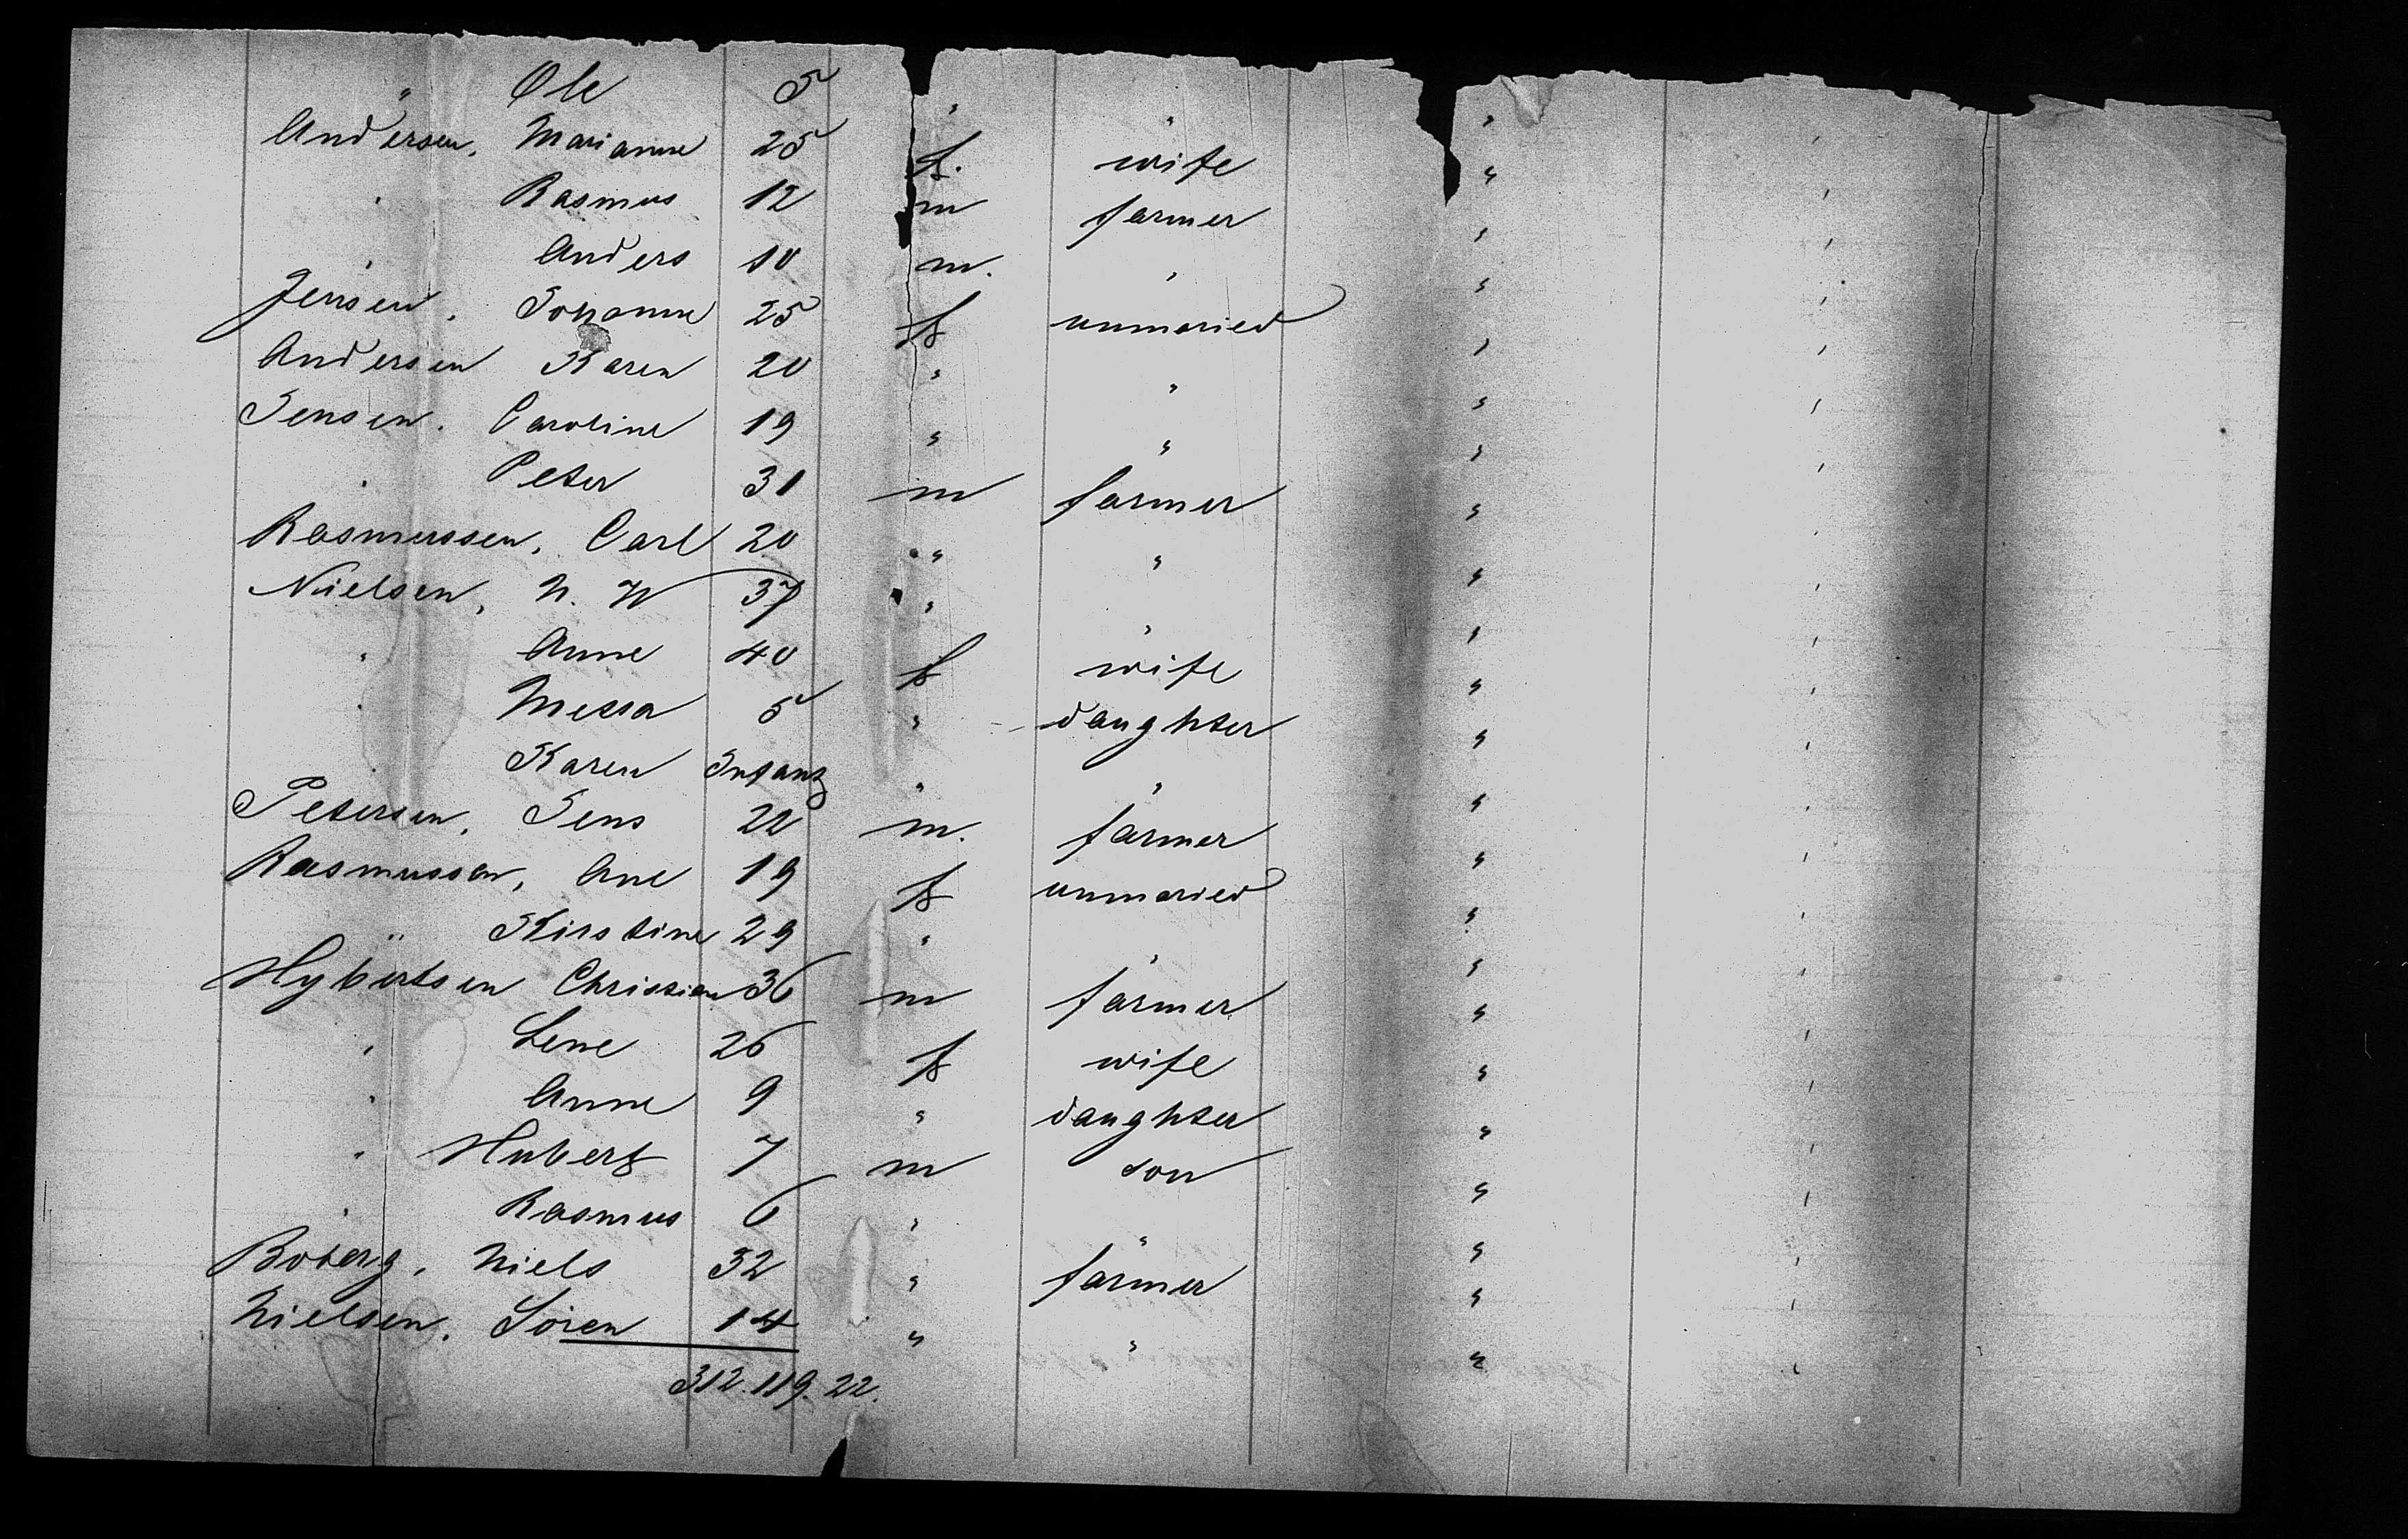 " Ole 5 " " " "
Andersen, Marianne 25 f. wife " "
" Rasmus 12 m farmer " "
" Anders 10 m. " " "
Jensen, Johanne 25 f unmaried " "
Andersen Karen 20 " " " "
Jensen. Caroline 19 " " " "
" Peter 31 m farmer " "
Rasmussen, Carl 20 " " " "
Nielsen, N. W 37 " " " "
" Anne 40 f wife " "
" Metta 5 " daughter " "
" Karen Infant " " " "
Petersen, Jens 22 m. farmer " "
Rasmussen, Ane 19 f unmaried " "
" Kirstine 29 " " " "
Hybertsen Christian 36 m farmer " "
" Lene 26 f wife " "
" Anne 9 " daughter " "
" Hubert 7 m son " "
" Rasmus 6 " " " "
Boberg, Niels 32 " farmer " "
Nielsen, Sören 14 " " " "
312.119.22.